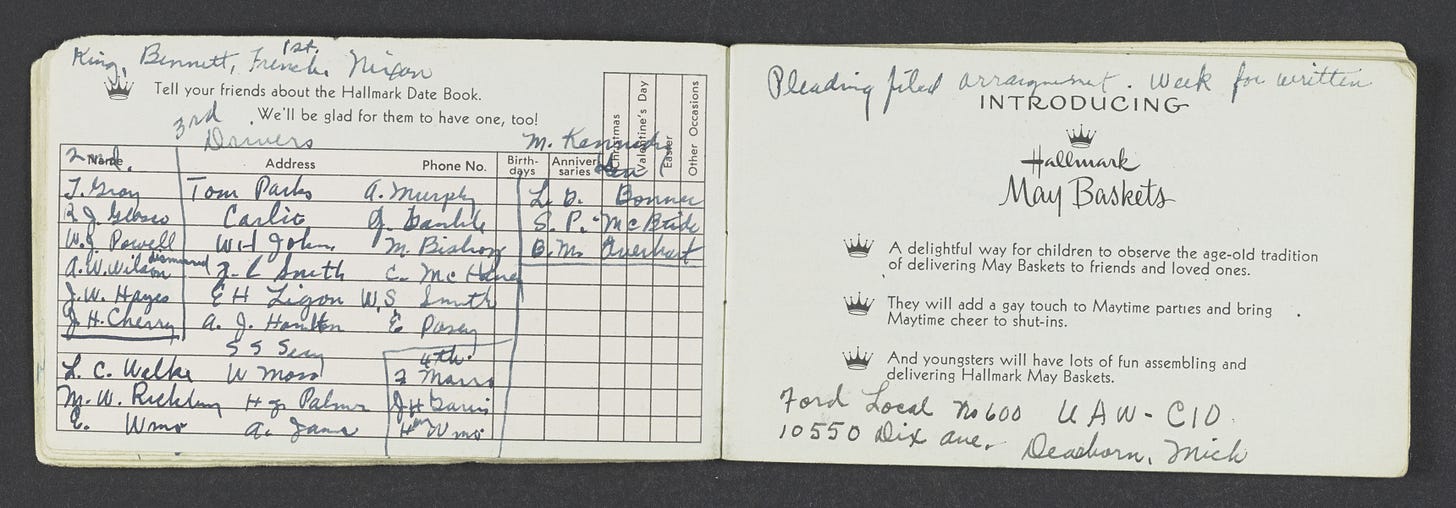 King, Bennett, French, Nixon
1st.
Tell your friends about the Hallmark Date Book.
We'll be glad for them to have one, too!
3rd
Drivers
M. Kennedy
2nd.
Name Address Phone No. Birth-days Anniver-saries Christmas Valentine's Day Easter Other Occasions
T. Gray Tom Parks A. Murphy L. D. Bonner
R. J. Glasco Carlito J. Gamble S. P. McBride
W. J. Powell W H John M. Bishop B. M. Overhart
A. W. Wilson dismissed F. L Smith C. McHaney
J. W. Hayes E H Ligon W. S Smith
J. H. Cherry A. J. Hamilton E Posey
S S Seay 4th
L. C. Walke W Moss Z Morris
M. W. Richling H J Palmer J H Garis
E. Wms A. Jans Wms
Pleading filed arraignment. Week for written
INTRODUCING
Hallmark
May Baskets
A delightful way for children to observe the age-old tradition
of delivering May Baskets to friends and loved ones.
They will add a gay touch to Maytime parties and bring
Maytime cheer to shut-ins.
And youngsters will have lots of fun assembling and
delivering Hallmark May Baskets.
Ford Local No 600 UAW-CIO.
10550 Dix ave. Deaborn, Mich